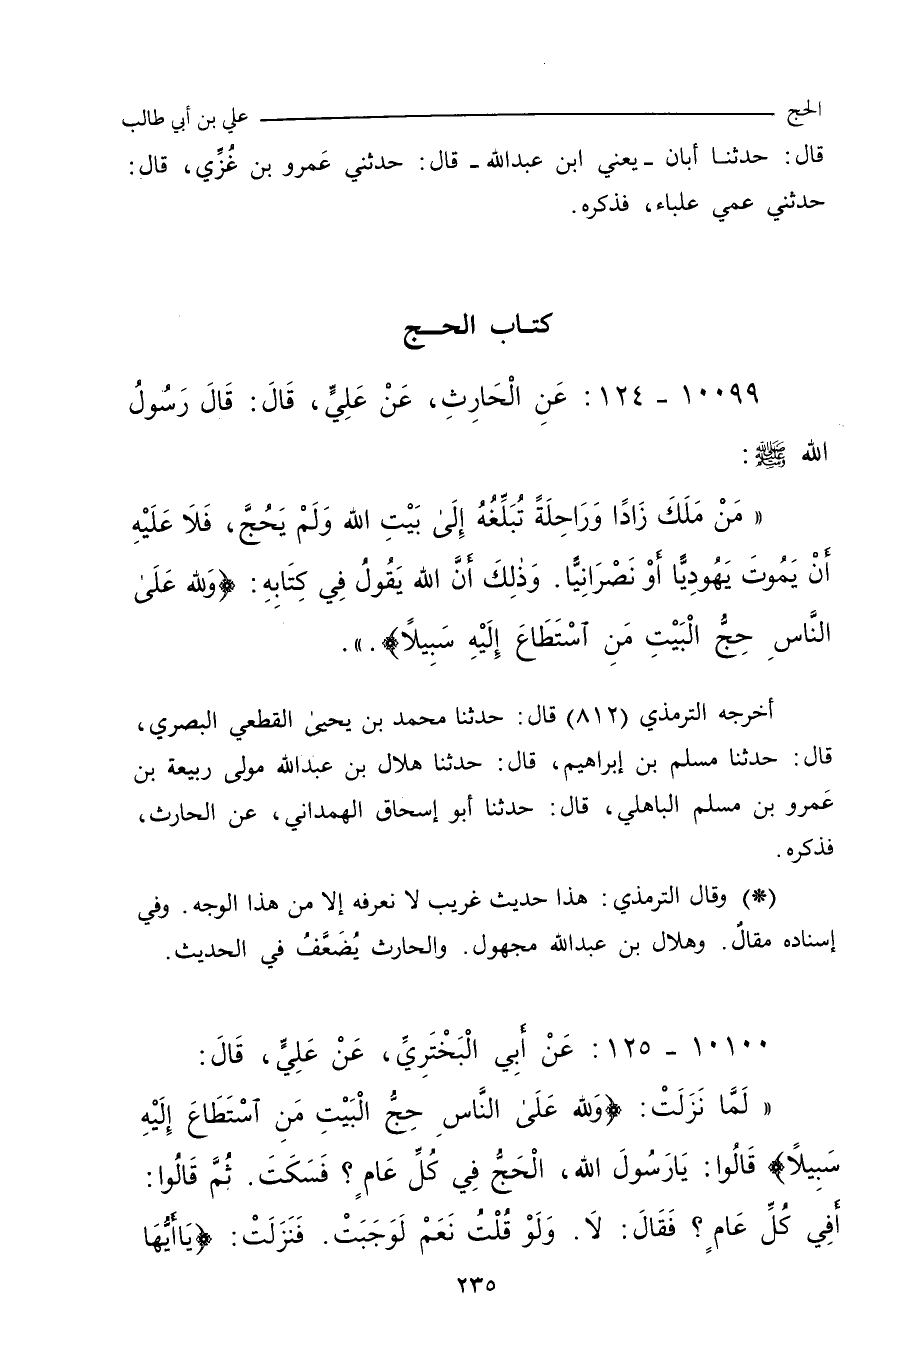 الحج ــــــــــ علي بن أبي طالب
قال: حدثنا أبان ـ يعني ابن عبدالله ـ قال: حدثني عَمرو بن غُزِّي، قال:
حدثني عمي علباء، فذكره.
كتـاب الحـــج
١٠٠٩٩ ـ ١٢٤: عَنِ الْحَارِثِ، عَنْ عَلِيٍّ، قَالَ: قَالَ رَسُولُ
الله ﷺ:
« مَنْ مَلَكَ زَادًا وَرَاحِلَةً تُبَلِّغُهُ إِلَىٰ بَيْتِ الله وَلَمْ يَحُجَّ، فَلَا عَلَيْهِ
أَنْ يَمُوتَ يَهُودِيًّا أَوْ نَصْرَانِيًّا. وَذٰلِكَ أَنَّ الله يَقُولُ فِي كِتَابِهِ: ﴿وَلله عَلَىٰ
النَّاسِ حِجُّ الْبَيْتِ مَنِ ٱسْتَطَاعَ إِلَيْهِ سَبِيلًا﴾.».
أخرجه الترمذي (٨١٢) قال: حدثنا محمد بن يحيىٰ القطعي البصري،
قال: حدثنا مسلم بن إبراهيم، قال: حدثنا هلال بن عبدالله مولى ربيعة بن
عَمرو بن مسلم الباهلي، قال: حدثنا أبو إسحاق الهمداني، عن الحارث،
فذكره.
(*) وقال الترمذي: هذا حديث غريب لا نعرفه إلا من هذا الوجه. وفي
إسناده مقالٌ. وهلال بن عبدالله مجهول. والحارث يُضَعَّفُ في الحديث.
١٠١٠٠ ـ ١٢٥: عَنْ أَبِي الْبَخْتَرِيِّ، عَنْ عَلِيٍّ، قَالَ:
« لَمَّا نَزَلَتْ: ﴿وَلله عَلَىٰ النَّاسِ حِجُّ الْبَيْتِ مَنِ ٱسْتَطَاعَ إِلَيْهِ
سَبِيلًا﴾ قَالُوا: يَارَسُولَ الله، الْحَجُّ فِي كُلِّ عَامٍ؟ فَسَكَتَ. ثُمَّ قَالُوا:
أَفِي كُلِّ عَامٍ؟ فَقَالَ: لَا. وَلَوْ قُلْتُ نَعَمْ لَوَجَبَتْ. فَنَزَلَتْ: ﴿يَاأَيُّهَا
٢٣٥